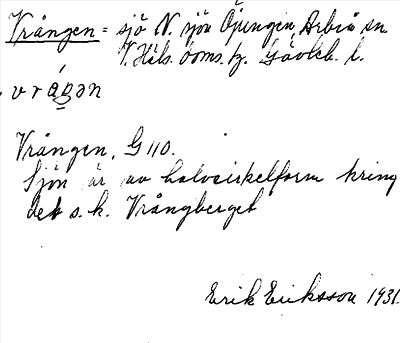 Vrången = sjö N. sjön Öjungen, Arbrå sn.
V. Häls. doms. hz. Gävleb. l.
vråŋən
Vrången, G 110.
Sjön är av halvcirkelform kring
det s.k. Vrångberget
Erik Eriksson 1931.